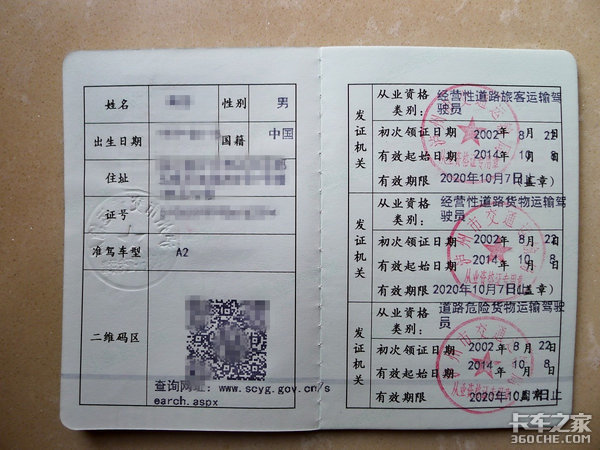 姓名
性别 男
出生日期
国籍 中国
住址
证号
准驾车型 A2
二维码区
查询网址: www.scyg.gov.cn/s
earch.aspx
发证机关
从业资格类别: 经营性道路旅客运输驾
驶员
初次领证日期 2002年 8月 22日
有效起始日期 2014年 10月 8日
有效期限 2020年10月7日(盖章)
发证机关
从业资格类别: 经营性道路货物运输驾
驶员
初次领证日期 2002年 8月 22日
有效起始日期 2014年 10月 8日
有效期限 2020年10月7日(盖章)
发证机关
从业资格类别: 道路危险货物运输驾驶
员
初次领证日期 2002年 8月 22日
有效起始日期 2014年 10月 8日
有效期限 2020年10月
泸州市交通
从业资格证专用章
卡车之家
360CHE.COM